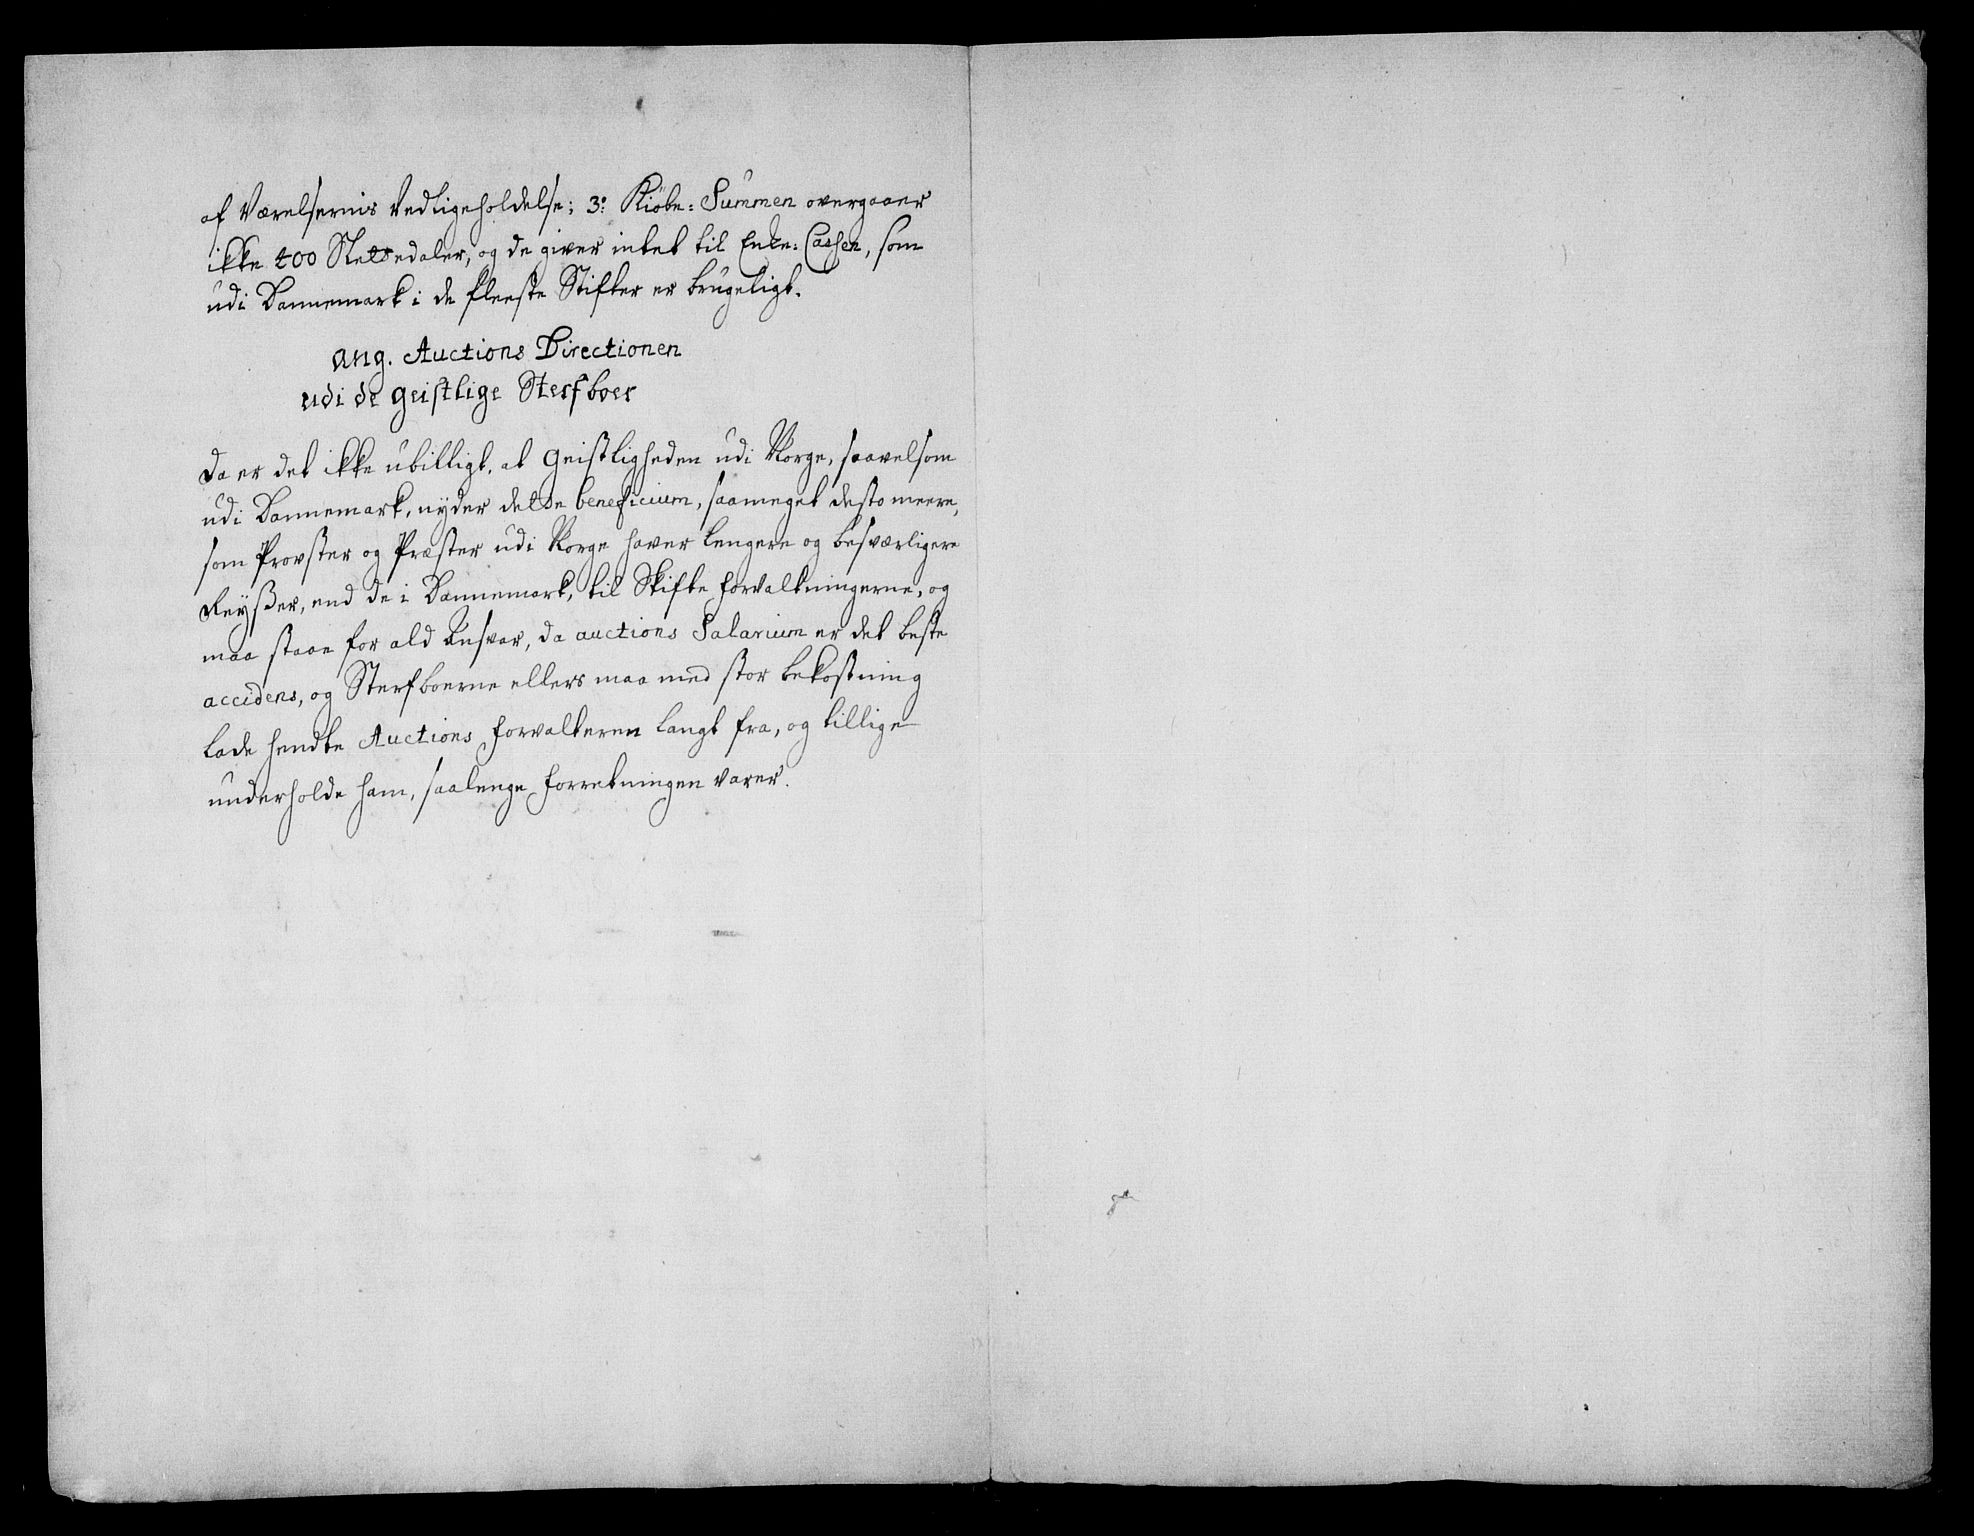 af Værelsernis Vedligeholdelse; 3º Kiöbe: Summen overgaaer
ikke 400 Slettedaler, og de giver intet til Enke: Cassen, som
udi Dannemark i de fleeste Stifter er brugeligt.
Ang. Auctions Directionen
udi de geistlige Sterfboer
Da er det ikke ubilligt, at Geistligheden udi Norge, saavelsom
udi Dannemark, nyder dette beneficium, saameget desto meere,
som Provster og Præster udi Norge haver lengere og besværligere
Reyßer, end de i Dannemark, til Skifte forvaltningerne, og
maa staae for ald Ansvar, da auctions Salarium er det beste
accidens, og Sterfboerne ellers maa med stor bekostning
lade hendte Auctions forvalteren langt fra, og tillige
underholde ham, saalenge forretningen varer.